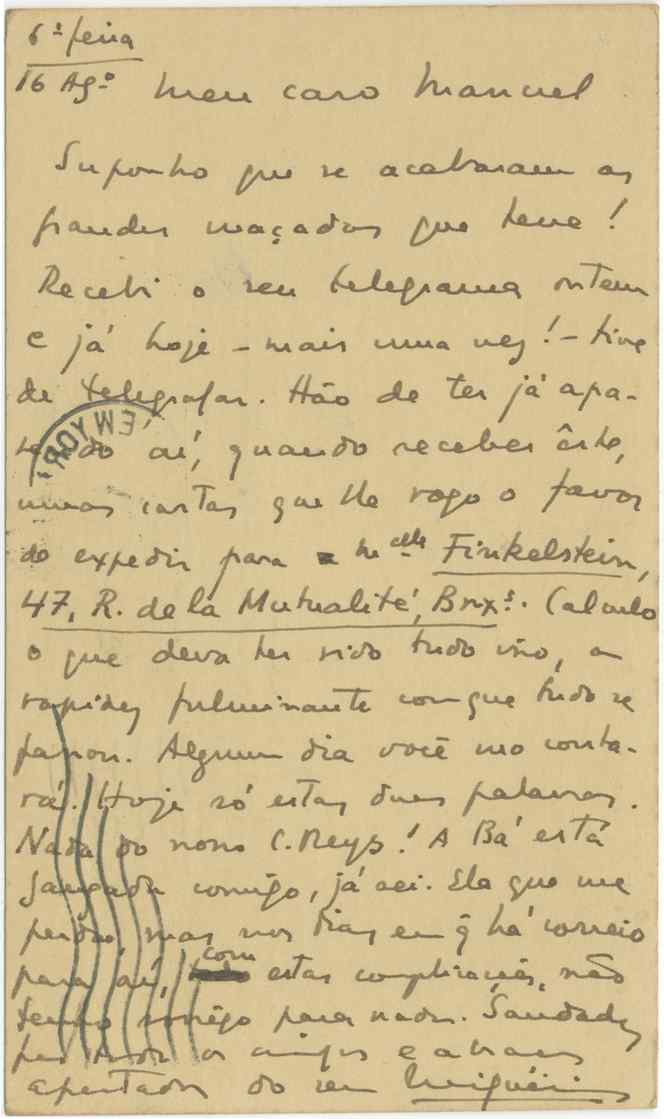 6ª feira
16 Agº Meu caro Manuel
Suponho que se acabaram as
grandes maçadas que teve!
Recebi o seu telegrama ontem
e já hoje – mais uma vez! – tive
de telegrafar. Hão de ter já apa-
recido aí, quando receber êste,
umas cartas que lhe rogo o favor
de expedir para Melle Finkelstein,
47, R. de la Mutualité, Brxs. Calculo
o que deva ter sido tudo isso, a
rapidez fulminante com que tudo se
passou. Algum dia você mo conta-
rá. Hoje só estas duas palavras.
Nada do nosso C. Reys! A Bá está
zangada comigo, já sei. Ela que me
perdoe, mas nos dias em q̃ há correio
para aí, com estas complicações, não
tenho comigo para nada. Saudades
para todos os amigos e abraços
apertados do seu Miguéis
EM YORK